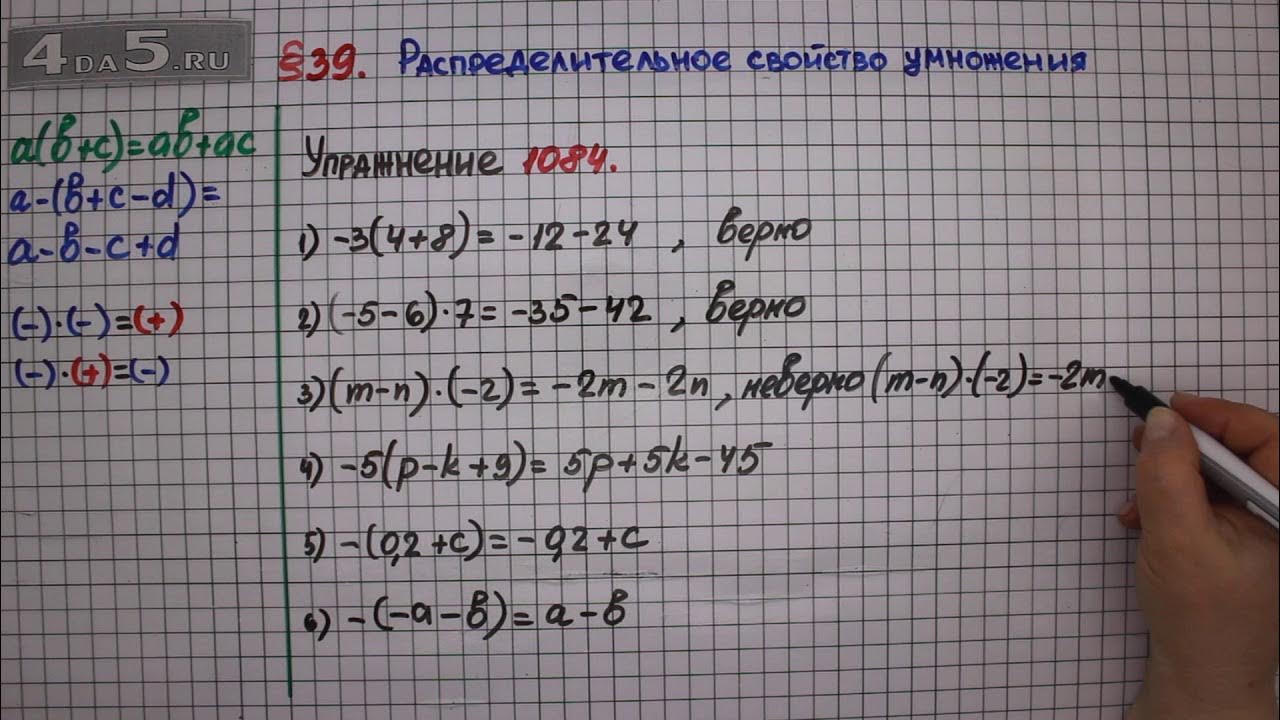 4DA5.RU
§39. Распределительное свойство умножения
a(b+c)=ab+ac
a-(b+c-d)=
a-b-c+d
(-)·(-)=(+)
(-)·(+)=(-)
Упражнение 1084.
1) -3(4+8)= -12-24 , верно
2) (-5-6)·7= -35-42 , верно
3) (m-n)·(-2)= -2m-2n , неверно (m-n)·(-2)=-2m
4) -5(p-k+9)= 5p+5k-45
5) -(0,2+c)=-0,2+c
6) -(-a-b)= a-b